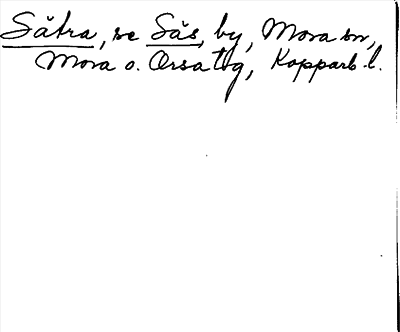 Sätra, se Säs, by, Mora sn,
Mora o. Orsa tlg, Kopparb. l.